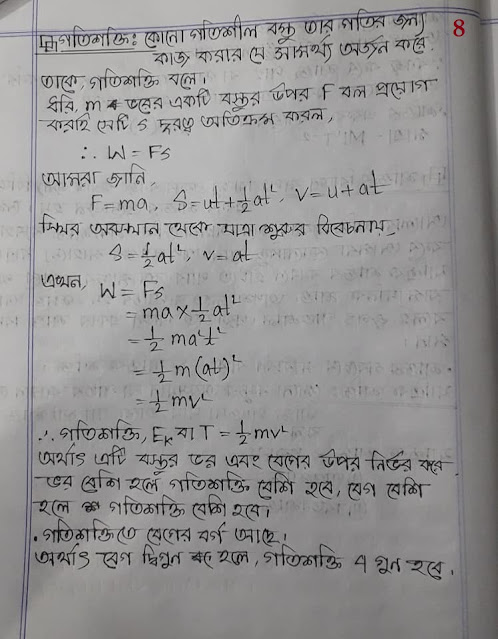 গতিশক্তি: কোনো গতিশীল বস্তু তার গতির জন্য 8
কাজ করার যে সামর্থ্য অর্জন করে
তাকে গতিশক্তি বলে।
ধরি, m ভরের একটি বস্তুর উপর F বল প্রয়োগ
করায় সেটি s দূরত্ব অতিক্রম করল,
∴ W = Fs
আমরা জানি,
F = ma, S = ut + ½at², v = u + at
স্থির অবস্থান থেকে যাত্রা শুরুর বিবেচনায়,
S = ½at², v = at
এখন, W = Fs
= ma × ½at²
= ½ma²t²
= ½m(at)²
= ½mv²
∴ গতিশক্তি, Eₖ বা T = ½mv²
অর্থাৎ এটি বস্তুর ভর এবং বেগের উপর নির্ভর করে।
ভর বেশি হলে গতিশক্তি বেশি হবে, বেগ বেশি
হলে গতিশক্তি বেশি হবে।
. গতিশক্তিতে বেগের বর্গ আছে।
অর্থাৎ বেগ দ্বিগুন হলে, গতিশক্তি 4 গুন হবে।